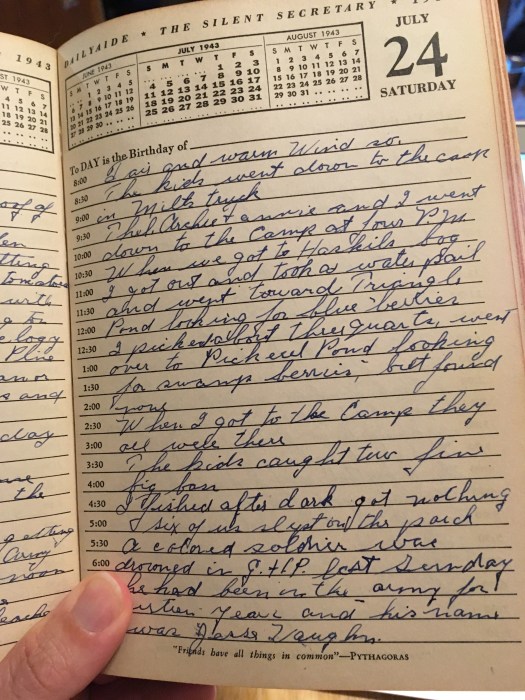 DAILYAIDE ★ THE SILENT SECRETARY ★
JUNE 1943
JULY 1943
AUGUST 1943
JULY
24
SATURDAY
S M T W T F S
1 2 3
4 5 6 7 8 9 10
11 12 13 14 15 16 17
18 19 20 21 22 23 24
25 26 27 28 29 30 31
S M T W T F S
1 2 3 4 5 6 7
8 9 10 11 12 13 14
15 16 17 18 19 20 21
22 23 24 25 26 27 28
29 30 31
To DAY is the Birthday of
8:00 Fair and warm Wind so.
8:30 The kids went down to the camp
9:00 in Milts truck
9:30 Archie + annie and I went
10:00 down to the Camp at four PM
10:30 When we got to Haskils bog
11:00 I got out and took a water pail
11:30 and went toward Triangle
12:00 Pond looking for blue berries
12:30 I picked about three quarts, went
1:00 over to Pickerel Pond looking
1:30 for swamp berries, but found
2:00 none
2:30 When I got to the Camp they
3:00 all were there
3:30 The kids caught two fine
4:00 big bass
4:30 I fished after dark got nothing
5:00 six of us slept on the porch
5:30 a colored soldier was
6:00 drowned in last Sunday
he had been in the army for
years and his name
was Vaughn.
"Friends have all things in common"—PYTHAGORAS